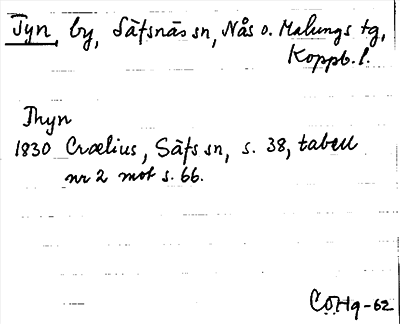 Tyn, by, Säfsnäs sn, Nås o. Malungs tg,
Koppb. l.
Thyn
1830 Crælius, Säfs sn, s. 38, tabell
nr 2 mot s. 66.
COHg-62